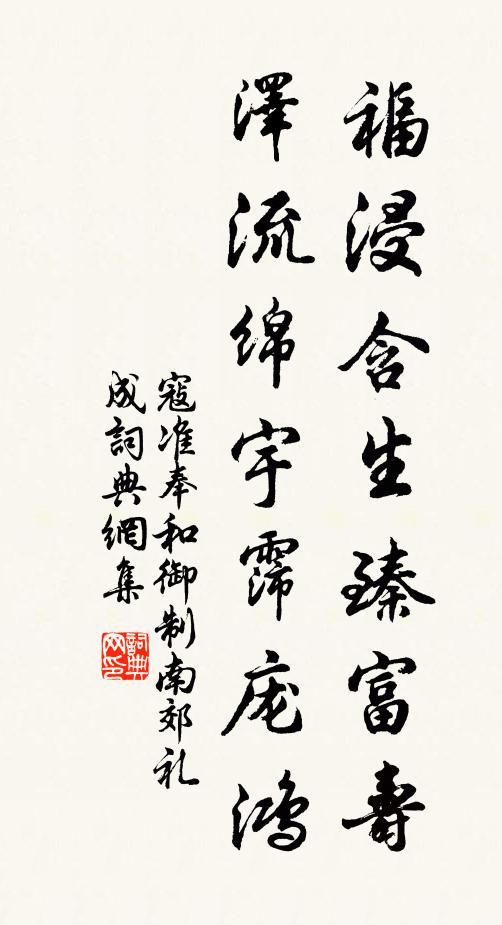 福浸含生臻富壽
澤流绵宇霈庞鸿
寇准奉和御制南郊礼
成詞典網集